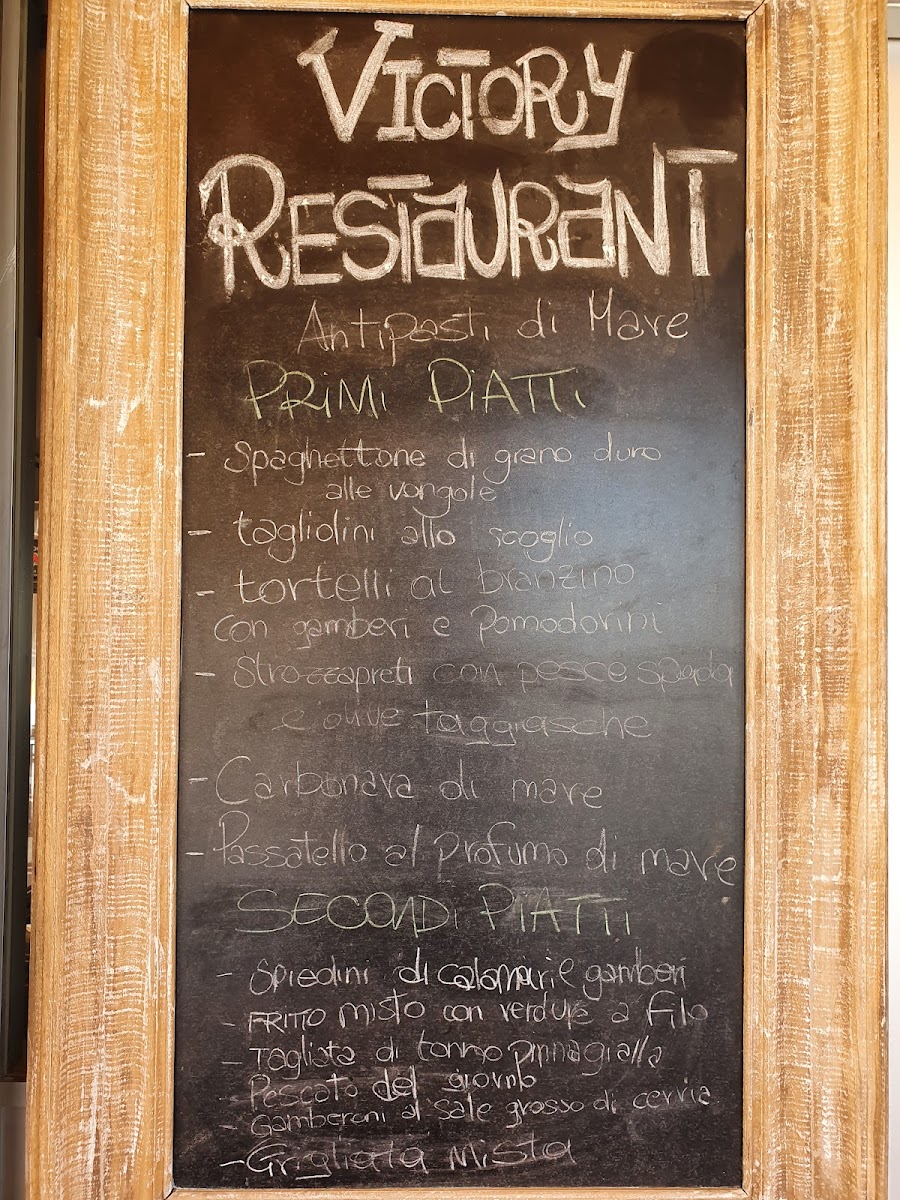 VICTORY
RESTAURANT
Antipasti di Mare
PRIMI PIATTI
- Spaghettone di grano duro
alle vongole
- tagliolini allo scoglio
- tortelli al branzino
con gamberi e Pomodorini
- Strozzapreti con pesce spada
e olive taggiasche
- Carbonara di mare
- Passatello al profumo di mare
SECONDI PIATTI
- Spiedini di calamari e gamberi
- FRITTO misto con verdure a filo
- Tagliata di tonno pinnagialla
- Pescato del giorno
- Gamberoni al sale grosso di cervia
- Grigliata Mista